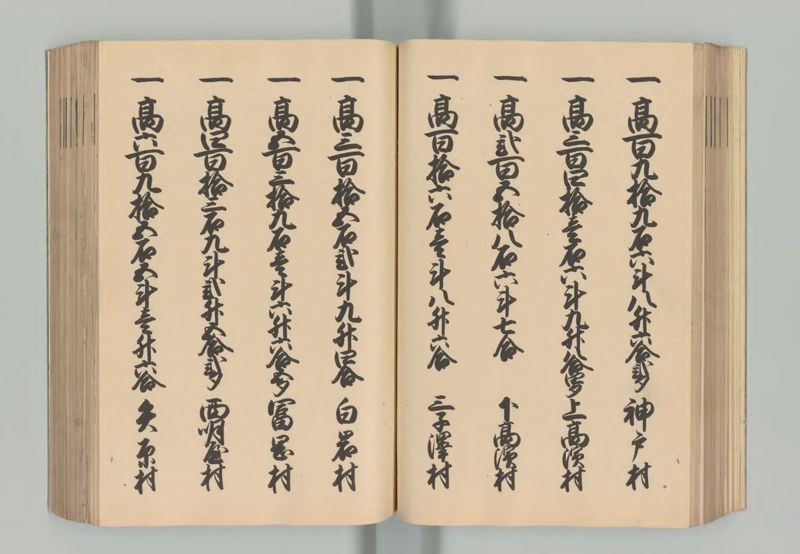 一 高百九拾九石六斗八升六合弐夕 神戸村
一 高三百四拾壱石六斗九升八合四夕 上高濱村
一 高弐百五拾八石六斗七合 下高濱村
一 高百拾六石壱斗八升六合 三子澤村
一 高三百拾五石弐斗九升四合 白岩村
一 高五百三拾九石壱斗六升六合五夕 冨岡村
一 高四百拾三石九斗弐升五合弐夕 西明屋村
一 高六百九拾五石五斗壱升六合 矢原村